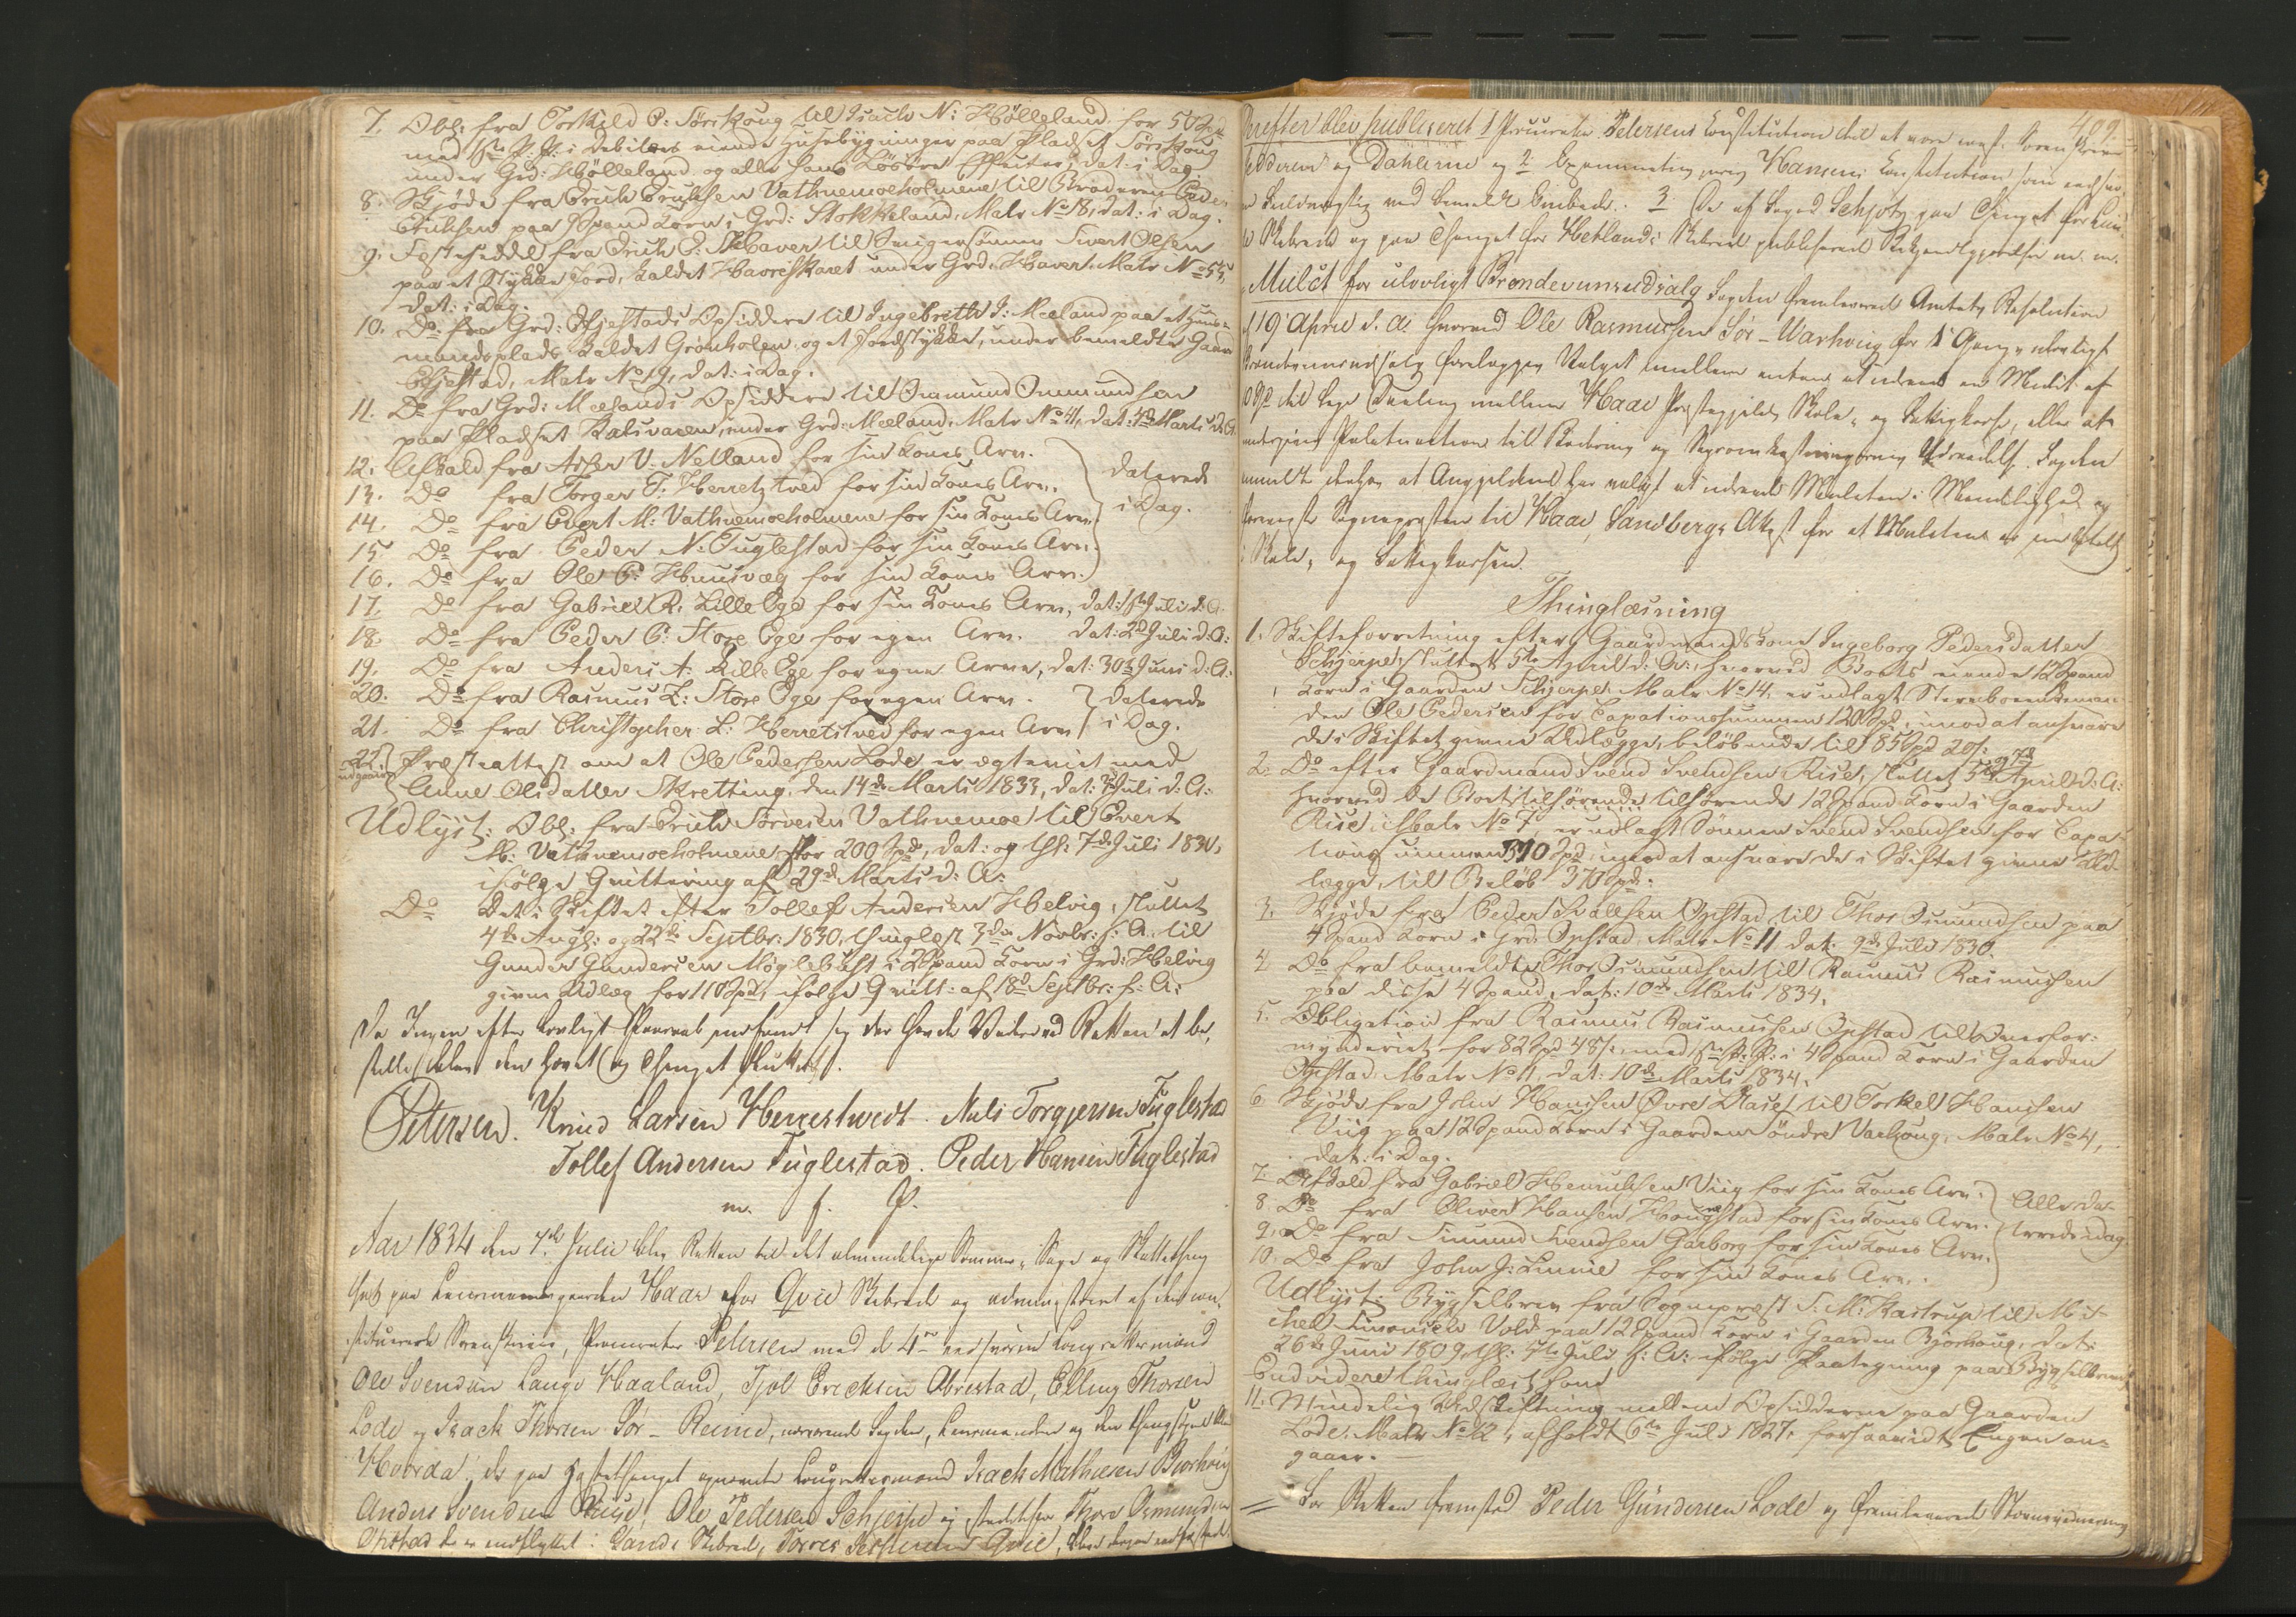 7. Obl: fra Torkild P: Sørskoug til Isach N: Hølleland for 50 Spd
med 1ste P: P: i Debitors eiende Huusebygninger paa Pladset Sørskoug
under Grd: Hølleland og alle hans Løsøre Effecter, dat: i Dag
8. Skjøde fra Erich Erichsen Vathnemoeholmene til Broderen Peder
Erichsen paa Spand Korn i Grd: Stokkeland, Matr No 18, dat: i Dag.
9. Festeseddel fra Erich E: Haver til Svigersønnen Sivert Olsen
paa et Stykke Jord, kaldet under Grd. Haver. Matr No 55,
dat: i Dag.
10. Do fra Grd: Opsiddere til Ingebreth I: Mæland paa et Huus-
mandsplads kaldet Grønholen og et Jordstykke, under bemeldte Gaard
Matr No 19, dat: i Dag.
11. Do fra Grd: Mælands Opsiddere til Omund Ommundsen
paa Pladset under Grd: Mæland, Matr No 41, dat: Marts d: A:
12. Afkald fra Asser V: Netland for sin Kones Arv.
13. Do fra Torger T: Herretztved for sin Kones Arv.
14. Do fra Evert M: Vathnemoeholmene for sin Kones Arv.
15. Do fra Peder N: Fuglestad for sin Kones Arv.
16. Do fra Ole P: Huusvæg for sin Kones Arv.
daterede
i Dag.
17. Do fra Gabriel R. Lille Ege for sin Kones Arv, dat: 1ste Juli d: A:
18. Do fra Peder P: Store Ege for egen Arv. dat: 2d Juli d: A:
19. Do fra Anders A: Lille Ege for egne Arve, dat: 30te Juni d: A:
20. Do fra Rasmus L: Store Ege for egen Arv.
21. Do fra Christopher L: Herretstved for egen Arv
daterede
i Dag.
22. Præsteattest om at Ole Pedersen Lode er ægteviet med
udgaaer
Anne Olsdatter Skretting den 14de Marts 1833, dat: Juli d: A:
Udlyst: Obl: fra Erich Sørensen Vathnemoe til Evert
M: Vathnemoeholmene stor 200 Spd, dat: og thl: 7de Juli 1830,
ifølge Qvittering af 29de Marts d: A:
Do Det i Skiftet efter Tollef Andersen Helvig, sluttet
4de Augst: og 22de Septbr: 1830, thinglæst 3die Novbr: s: A: til
Gunder Gundersen Møglebust i 2 Spand Korn i Grd: Helvig
givne Udlæg for 110 Spd, ifølge Qvitt: af 18d Septbr: s: A:
Da Ingen efter lovligt Paaraab indfandt sig der havde Videre ved Retten at be-
stille blev den hævet og Thinget sluttet.
Petersen. Knud Larsen Herrestvedt. Nils Torgjersen Fuglestad
Tollef Andersen Fuglestad. Peder Hansen Fuglestad
m. f. P.
Aar 1834 den 7de Julii blev Retten til det almindelige Sommer-, Sage og Skattething
sat paa Lensmandsgaarden Haar for Qviè Skibrede og administreret af den con-
stituerede Sorenskriver, Procurator Petersen med de 4re eedsvorne Laugrettesmænd
Ole Svendsen Lange Haaland, Tjøl Ericksen Obrestad, Elling Thorsen
Lode og Isack Thorsen Sør-Reime, nærværende Fogden, Lensmanden og den Thingsøgende Almue
Hvorda de paa Høstethinget opnævnte Laugrettesmænd Isach Mathiesen Bjorhoug
Anders Svendsen Riise, Ole Pedersen Schjerpe og istedetfor Thore Osmundsen
Obstad der er indflyttet i Lands Skibrede, Torres Qvie,
489.
Derefter blev publiceret 1 Procurator Petersens Constitution til at være const. Sorenskriver
i Jedderen og Dahlerne og 2 Hansens Constitution som eedsvo-
ren Fuldmægtig ved bemeldte Embede. 3 De af Foged Schjøtz paa Thinget for
Skibrede og paa Thinget for Hetlands Skibrede publicerede Bekjendtgjørelser m. m.
Mulct for ulovligt Brændeviinsudsalg Fogden fremleverede Amtets Resolution
af 19 April d. A. hvorved Ole Rasmussen Sør-Warhoug for 1 Gang ulovligt
Brændeviinsudsalg forelægges Valget imellem enten at udrede en Mulct af
10 Spd til lige Deeling mellem Haae Præstegjelds Skole- og Fattigkasse, eller at
undergives Politiaction til og Sagsomkostningernes Udredelse. Fogden
anmeldte derhos at Angjeldende har valgt at udrede Mulcten i Mindelighed og
fremlagde Sognepræsten til Haae, Sandbergs Attest for at Mulcten er indbetalt
i Skole- og Fattigkassen.
Thinglæsning
1. Skifteforretning efter Gaardmandskone Ingeborg Pedersdatter
Schjerpe, sluttet 5te April d: A:, hvorved Boets eiende 12 Spand
Korn i Gaarden Schjerpe Matr No 14. er udlagt Sterboenkeman-
den Ole Pedersen for Taxationssummen 120 Spd, imod at ansvare
de i Skiftet givne Udlægge, beløbende til 85 Spd 20 s.
2. Do efter Gaardmand Svend Svendsen Riise, sluttet 5te og 7d April d: A:
hvorved de Boet tilhørende tilhørende 12 Spand Korn i Gaarden
Riise, Matr No 7, er udlagt Sønnen Svend Svendsen for Taxa-
tionssummen 510 Spd, imod at ansvare de i Skiftet givne Ud-
lægge, til Beløb 370 Spd.
3. Skjøde fra Peder Opstad til Thor Osmundsen paa
4 Spand Korn i Grd. Opstad, Matr No 11 dat: 9de Juli 1830.
4. Do fra bemeldte Thor Osmundsen til Rasmus Rasmussen
paa disse 4 Spand, dat: 10de Marts 1834.
5. Obligation fra Rasmus Rasmussen Opstad til Overfor-
mynderiet for 82 Spd 48 s, med 1ste P: P: i 4 Spand Korn i Gaarden
Opstad, Matr No 11, dat: 10de Marts 1834.
6 Skjøde fra John Hansen Øvre til Torkel Hansen
Viig paa 12 Spand Korn i Gaarden Søndre Varhoug, Matr No 4,
dat: i Dag.
7. Afkald fra Gabriel Henrichsen Viig for sin Kones Arv.
8. Do fra Oliver Hansen Hougstad for sin Kones Arv.
9. Do fra Simund Svendsen Garborg for sin Kones Arv.
10. Do fra John J: Linnie for sin Kones Arv.
Alle da-
terede idag
Udlyst: Bygselbrev fra Sognepræst S. M: Kastrup til Mi-
chel Simonsen Vold paa 12 Spand Korn i Gaarden Bjorhoug, dat:
26de Juni 1809, thl: 5te Juli s: A: ifølge Paategning paa Bygselbrevet
Endvidere thinglæst som
11. Mindelig Udskiftning mellem Opsidderne paa Gaarden
Lode, Matr No 12, afholdt 6te Juli 1827, forsaavidt Engen an-
gaaer.
For Retten fremstod Peder Gundersen Lode og fremleverede